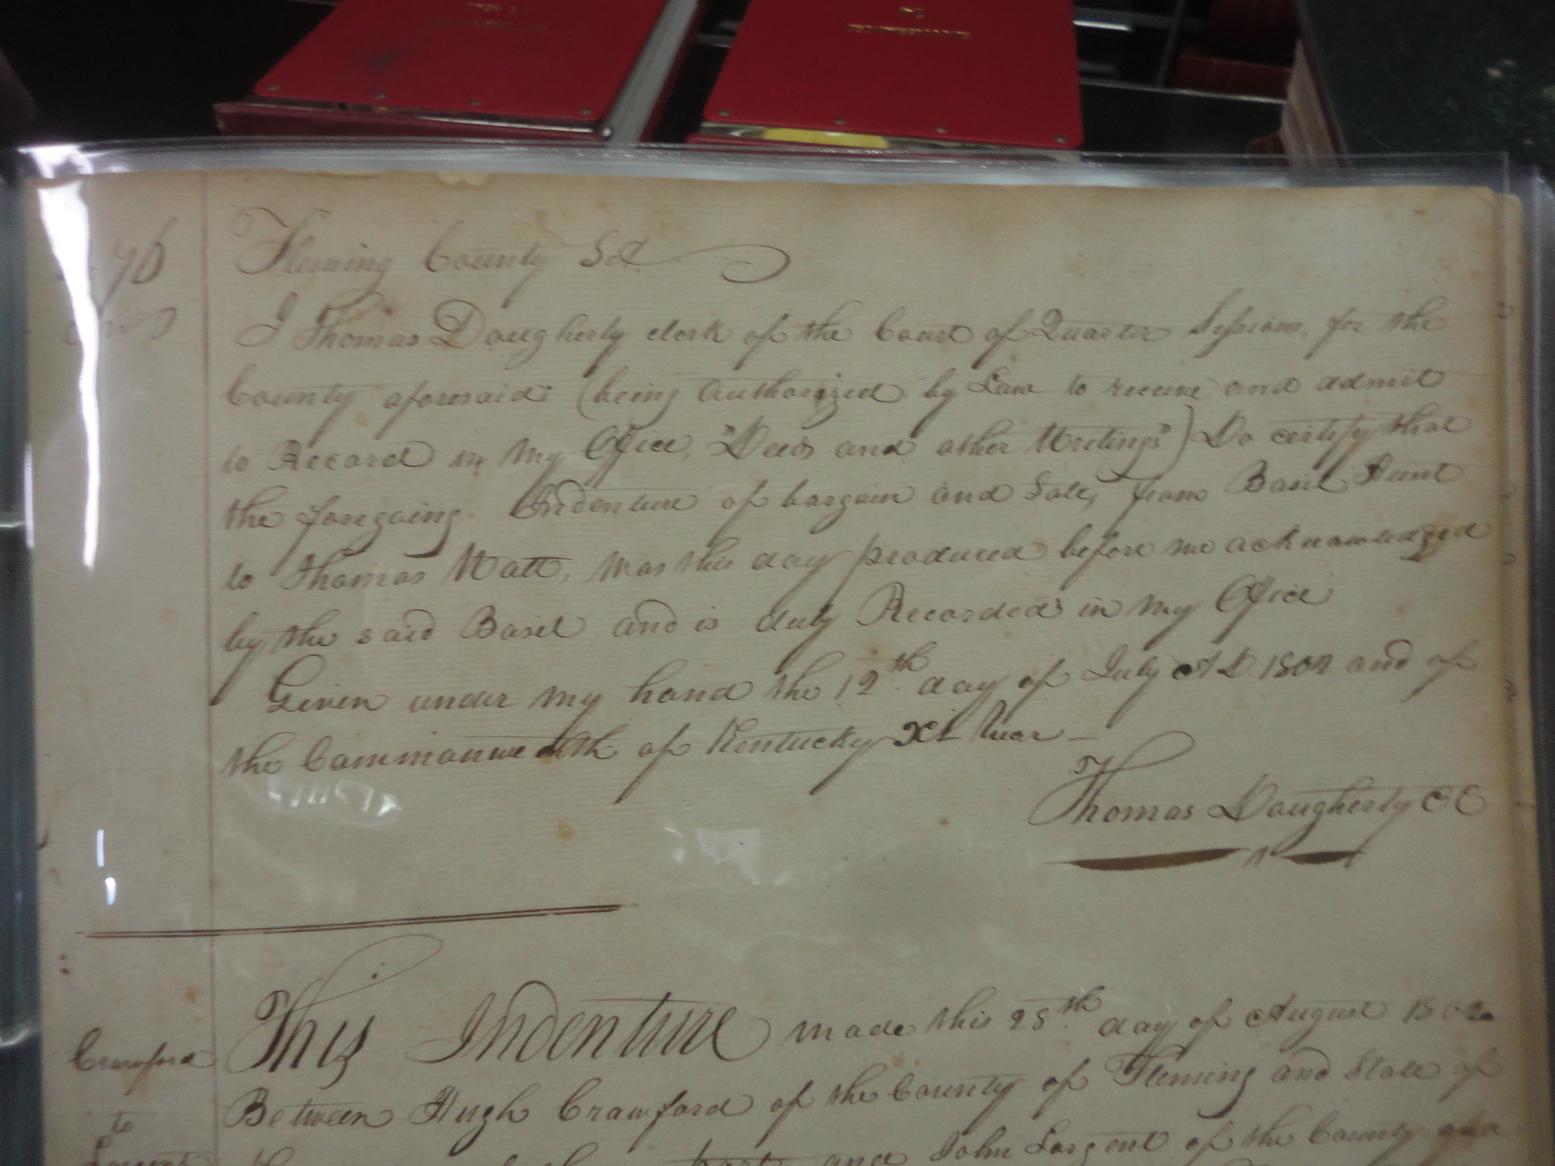 76
Fleming County Sct
I Thomas Dougherty clerk of the Court of Quarter Sessions, for the
County aforesaid (being authorized by Law to receive and admit
to Record in my Office, "Deeds and other Writings") Do certify that
the foregoing Indenture of bargain and Sale, from Basil Hunt
to Thomas Watt, was this day produced before me acknowledged
by the said Basil and is duly Recorded in my Office
Given under my hand the 12th day of July A D. 1802 and of
the Commonwealth of Kentucky XI Year
Thomas Dougherty CC
This Indenture made this 28th day of August 1802
Crawford
Between Hugh Crawford of the County of Fleming and State of
to
part and John Sargent of the County and